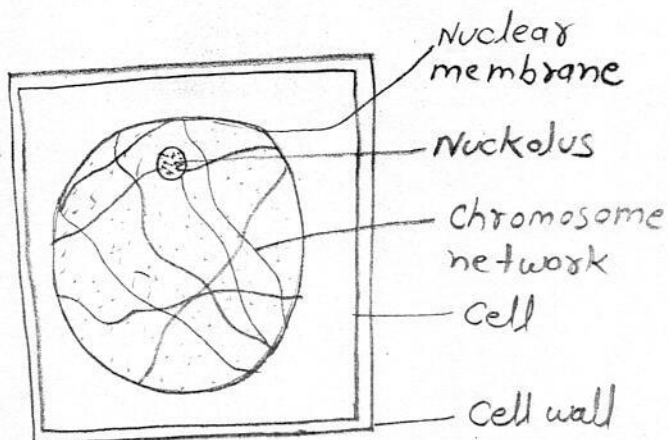 Nuclear
membrane
Nuckolus
Chromosome
network
Cell
Cell wall